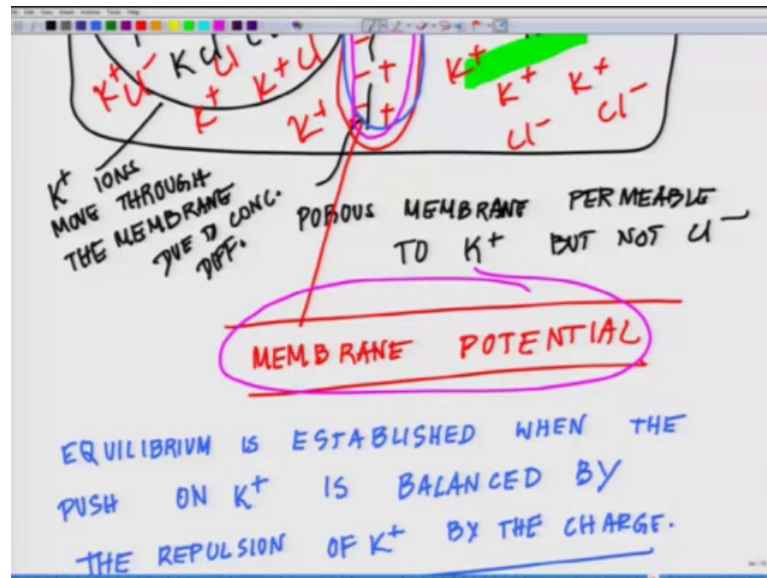 K+ Cl- K Cl Cl K+ Cl K+ K+ - + - + - + K+ K+ K+ Cl- Cl-
K+ IONS
MOVE THROUGH
THE MEMBRANE
DUE TO CONC.
DIFF.
POROUS MEMBRANE PERMEABLE
TO K+ BUT NOT Cl-
MEMBRANE POTENTIAL
EQUILIBRIUM IS ESTABLISHED WHEN THE
PUSH ON K+ IS BALANCED BY
THE REPULSION OF K+ BY THE CHARGE.